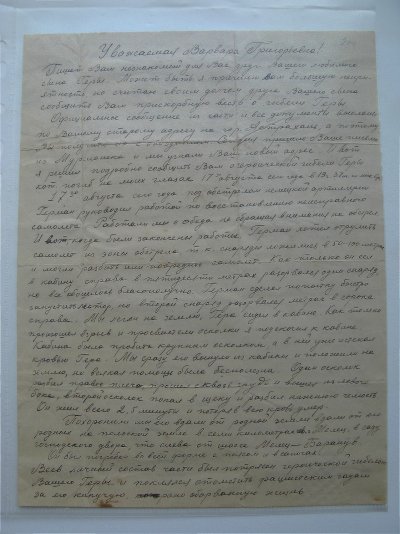 Уважаемая Варвара Григорьевна!
Пишет Вам незнакомый для Вас друг Вашего любимого
сына Геры. Может быть я причиню Вам большую неприят-
ность но считаю своим долгом друга Вашего сына
сообщить Вам прискорбную весть о гибели Геры.
Официальное сообщение из части и все документы высланы
по Вашему старому адресу на гор. Астрахань, а поэтому
Вы получите их с опозданием. Сегодня пришло Ваше письмо
из Мурманска и мы узнали Ваш новый адрес. И вот
я решил подробно сообщить Вам о героической гибели Геры
кот. погиб на моих глазах 17го августа сего года в
17го августа сего года под обстрелом немецкой артиллерии
Герман руководил работой по восстановлению неисправного
самолета. Работали мы с обеда, не обращая внимания на обстрел
И вот когда были закончены работы, Герман хотел отрулить
самолет из зоны обстрела т.к. снаряды ложились в 50-100 метрах
и могли разбить или повредить самолет. Как только он сел
в кабину справа в пятидесяти метрах разорвался один снаряд
но все обошлось благополучно. Герман сделал попытку быстро
запустить мотор, но второй снаряд разорвался метрах в сорока
справа. Мы легли на землю, Гера сидел в кабине. Как только
произошел взрыв и просвистели осколки я подскочил к кабине
Кабина была пробита крупным осколком, а в ней истекая
кровью Гера. Мы сразу его вынули из кабины и положили на
землю, но всякая помощь была бесполезна. Один осколок
пробил правое плечо, прошел сквозь грудь и вышел из левого
бока, а второй осколок попал в щеку и разбил нижнюю челюсть
Он жил всего 2,5 минуты и потеряв всю кровь умер.
Похоронили мы его вдали от родной земли вдали от вас
родных на польской земле в семи километрах от г. Мелец, в саду
господского двора что слева от шоссе Мелец - Баранув.
Он был погребен во всей форме с поясом и в сапогах.
Весь личный состав части был потрясен героической гибелью
Вашего Геры и поклялся отомстить фашистским гадам
за его кипучую, рано оборванную жизнь